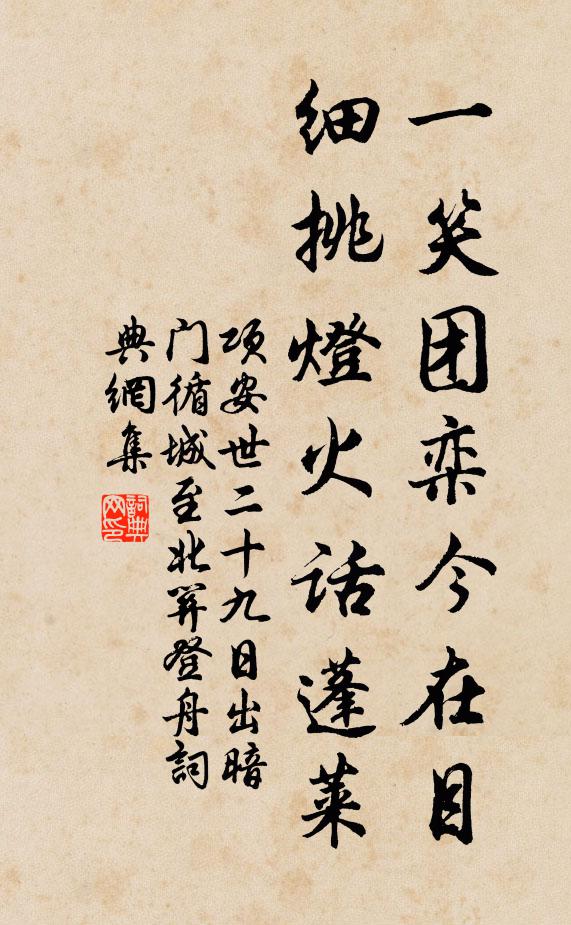 一笑团栾今在目
细挑燈火话蓬莱
项安世二十九日出暗
门循城至北笄登舟詞
典網集
詞典网印